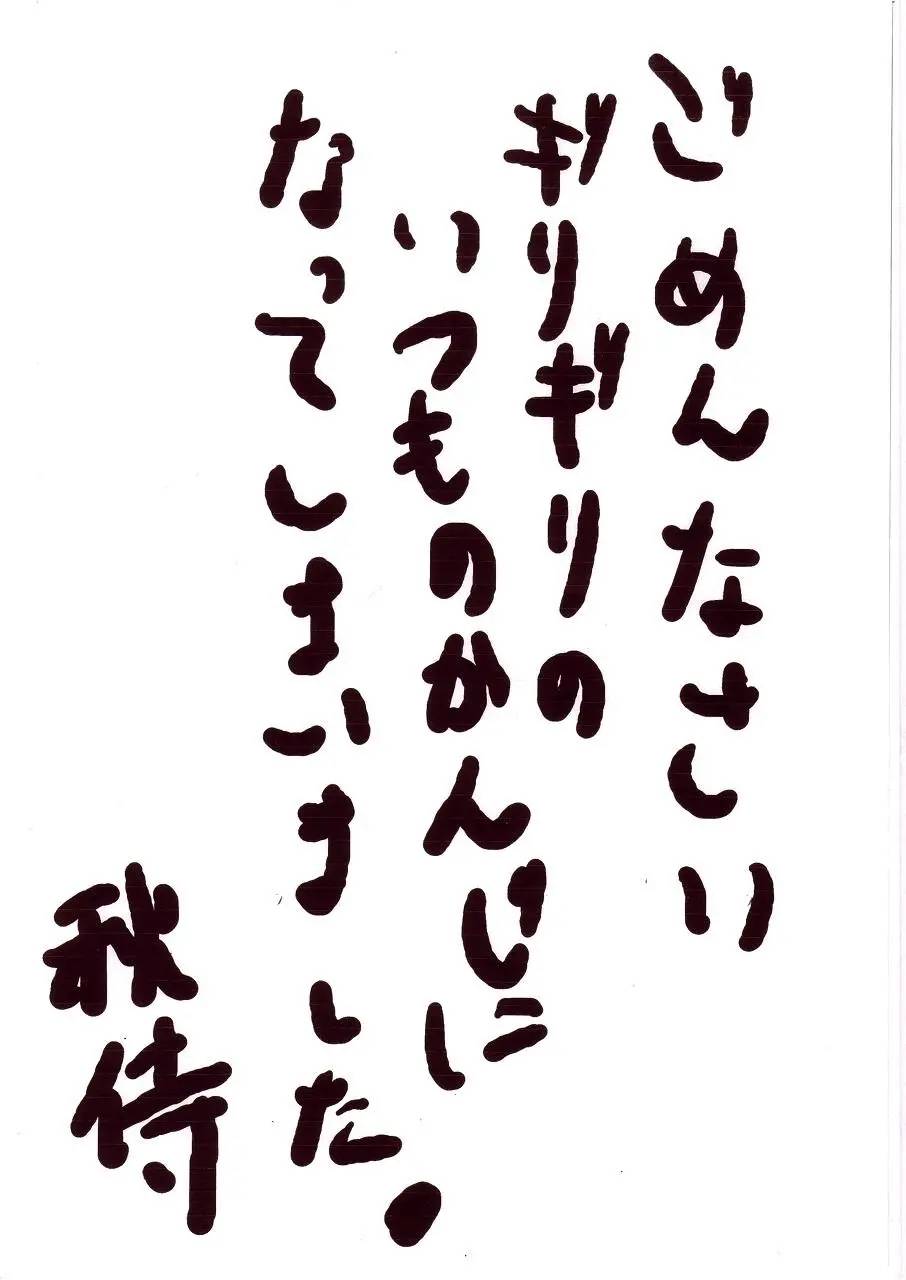 ごめんなさい
ギリギリの
いつものかんじに
なってしまいました。
秋侍